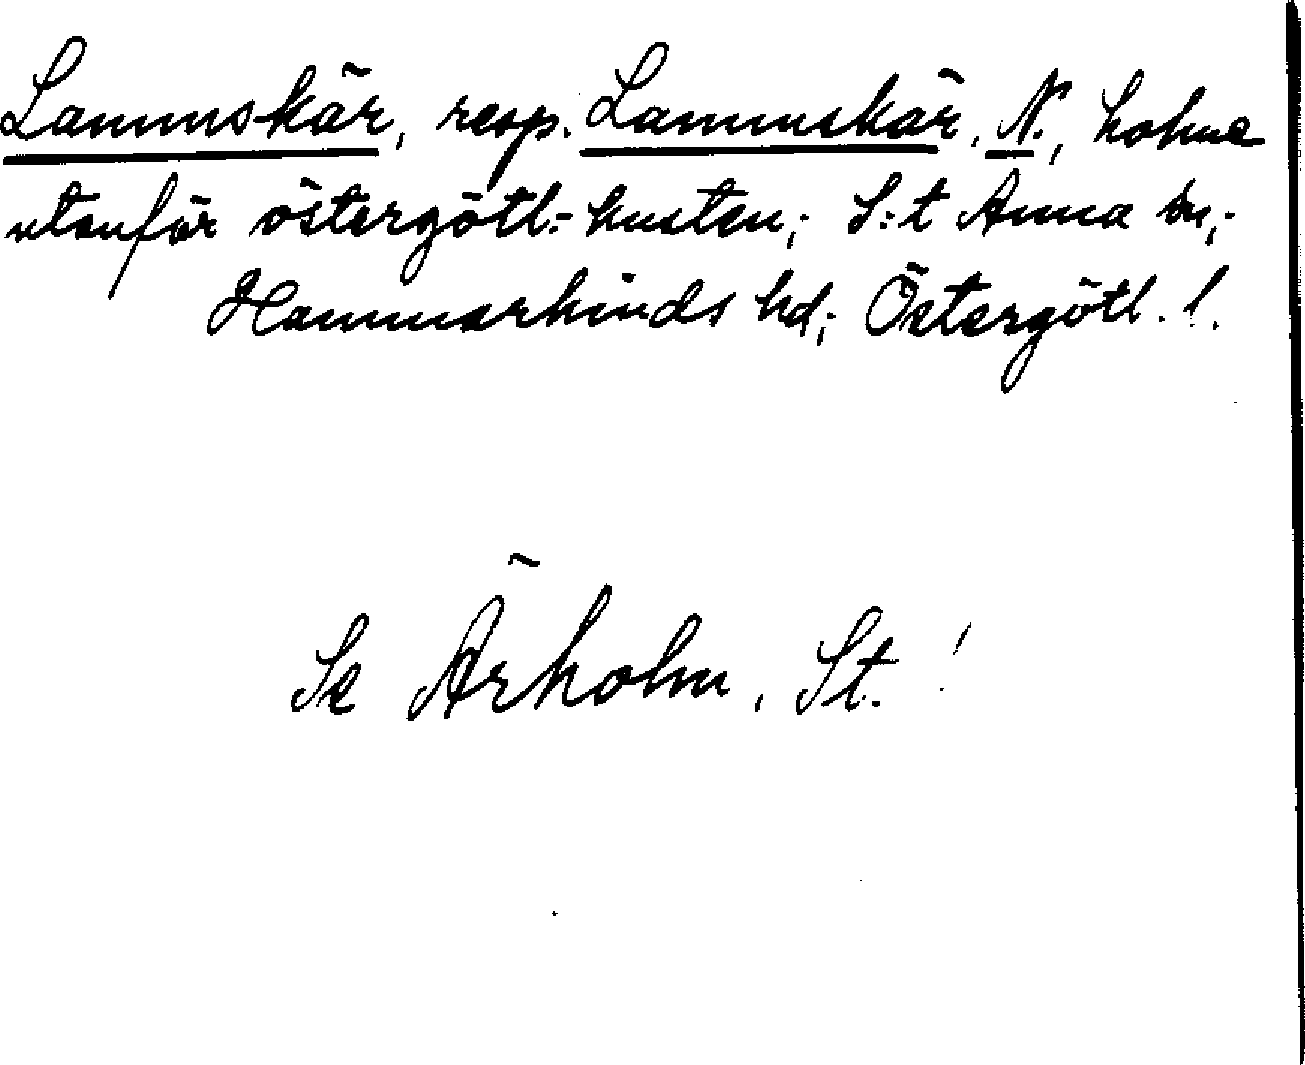 Lammskär, resp. Lammskär, N., holme
utanför östergötl:-kusten; S:t Anna sn,;
Hammarkinds hd,; Östergötl. l.
Se Ärholm, St. !